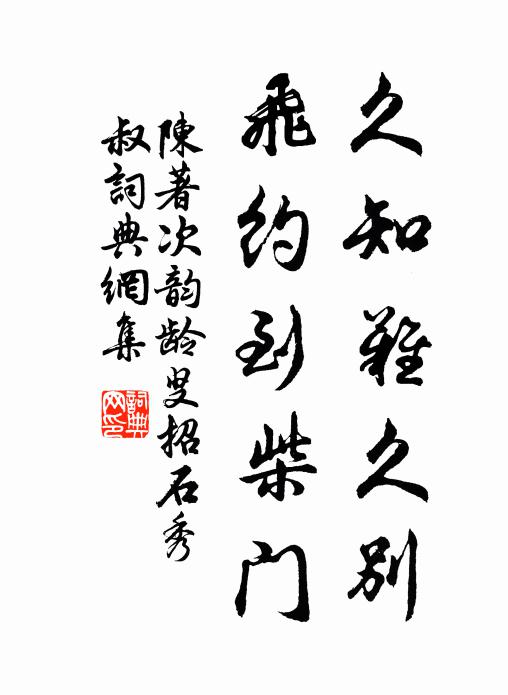 久知難久別
飛約到柴門
陳著次韵龄叟招石秀
叔詞典網集
詞典
网印